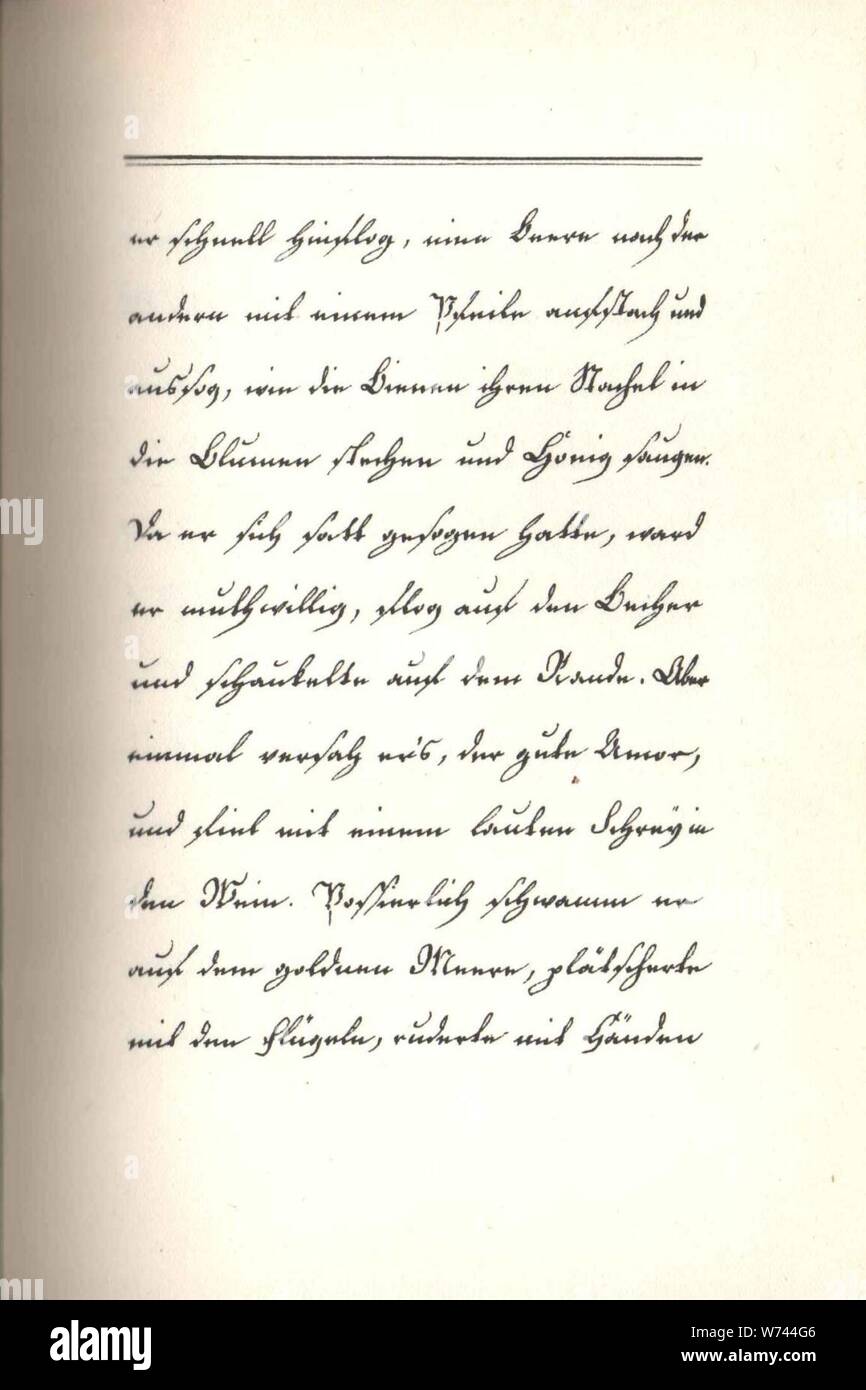 er schnell hinflog, eine Beere nach der
andern mit einem Pfeile aufstach und
aussog, wie die Bienen ihren Stachel in
die Blumen stechen und Honig saugen.
Da er sich satt gesogen hatte, ward
er muthwillig, flog auf den Becher
und schaukelte auf dem Rande. Aber
einmal versah er's, der gute Amor,
und fiel mit einem lauten Schrey in
den Wein. Possierlich schwamm er
auf dem goldnen Meere, plätscherte
mit den Flügeln, ruderte mit Händen
a
a
a
a
alamy
alamy
W744G6
www.alamy.com